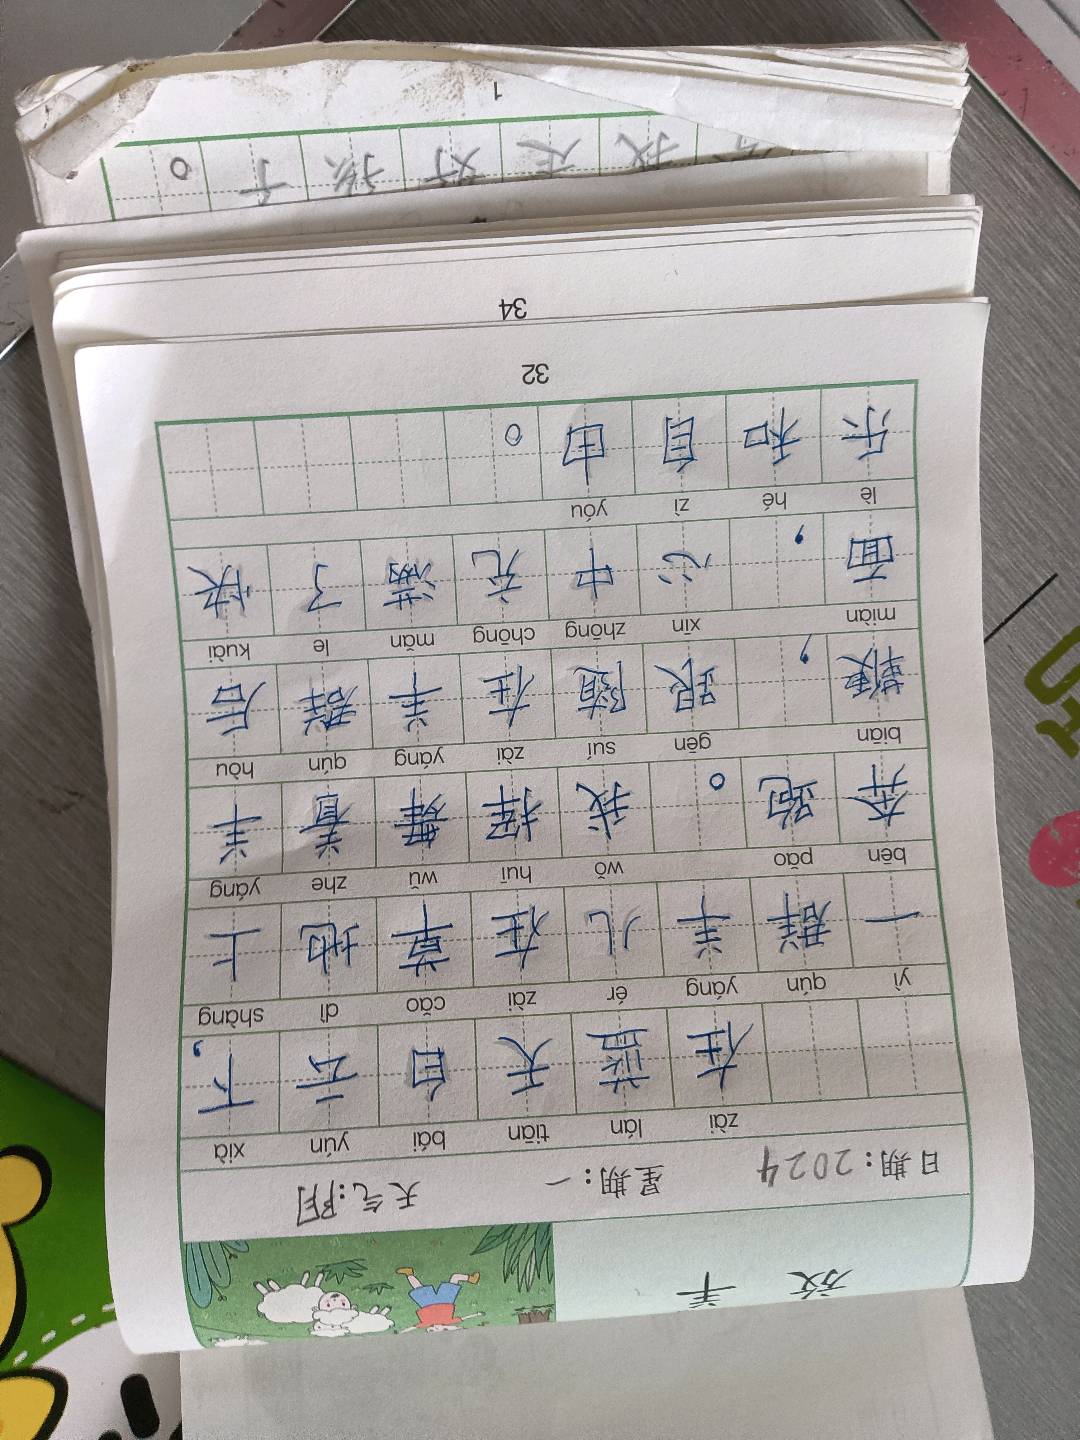 放羊
日期:2024 星期:一 天气:阴
zài lán tiān bái yún xià
在蓝天白云下,
yì qún yáng ér zài cǎo dì shàng
一群羊儿在草地上
bēn pǎo wǒ huī wǔ zhe yáng
奔跑。我挥舞着羊
biān gēn suí zài yáng qún hòu
鞭,跟随在羊群后
miàn xīn zhōng chōng mǎn le kuài
面,心中充满了快
lè hé zì yóu
乐和自由。
32
34
我是好孩子。
1